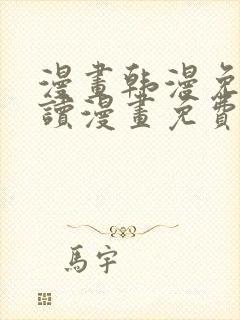 漫畫韩漫免
讀漫畫免費
馬宇